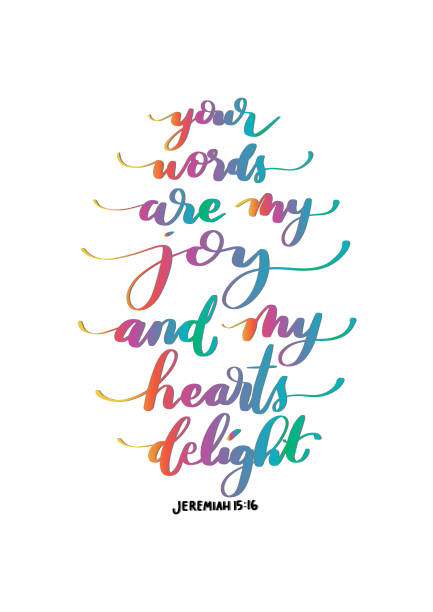 your
words
are my
joy
and my
hearts
delight
JEREMIAH 15:16